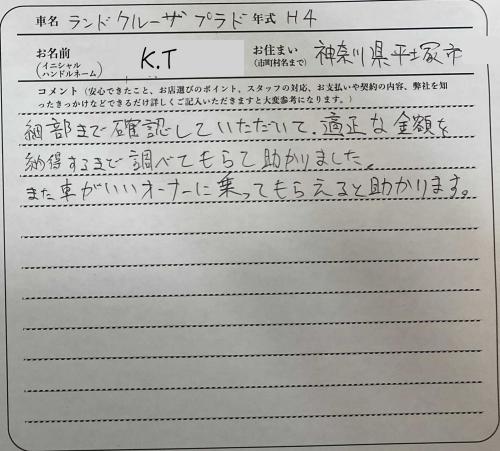 車名 ランドクルーザプラド 年式 H4
お名前 (イニシャル ハンドルネーム) K.T お住まい (市町村名まで) 神奈川県平塚市
コメント(安心できたこと、お店選びのポイント、スタッフの対応、お支払いや契約の内容、弊社を知
ったきっかけなどできるだけ詳しくご記入いただきますと大変参考になります。)
細部まで確認していただいて、適正な金額を
納得するまで調べてもらて助かりました。
また車がいいオーナーに乗ってもらえると助かります。